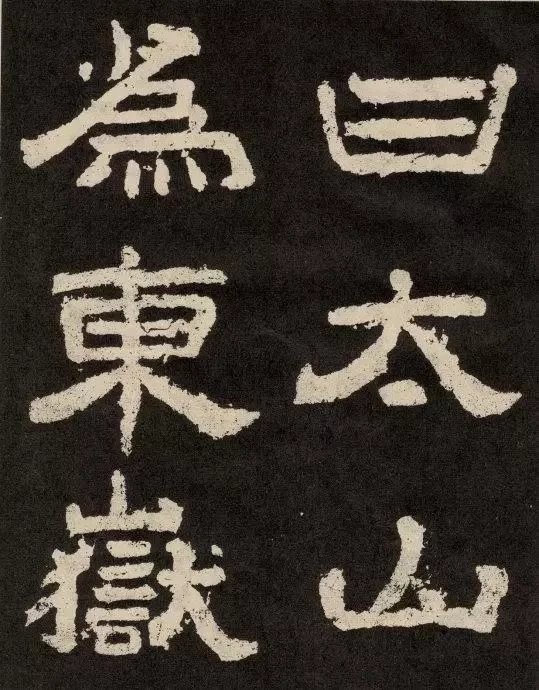 曰太山
為東嶽